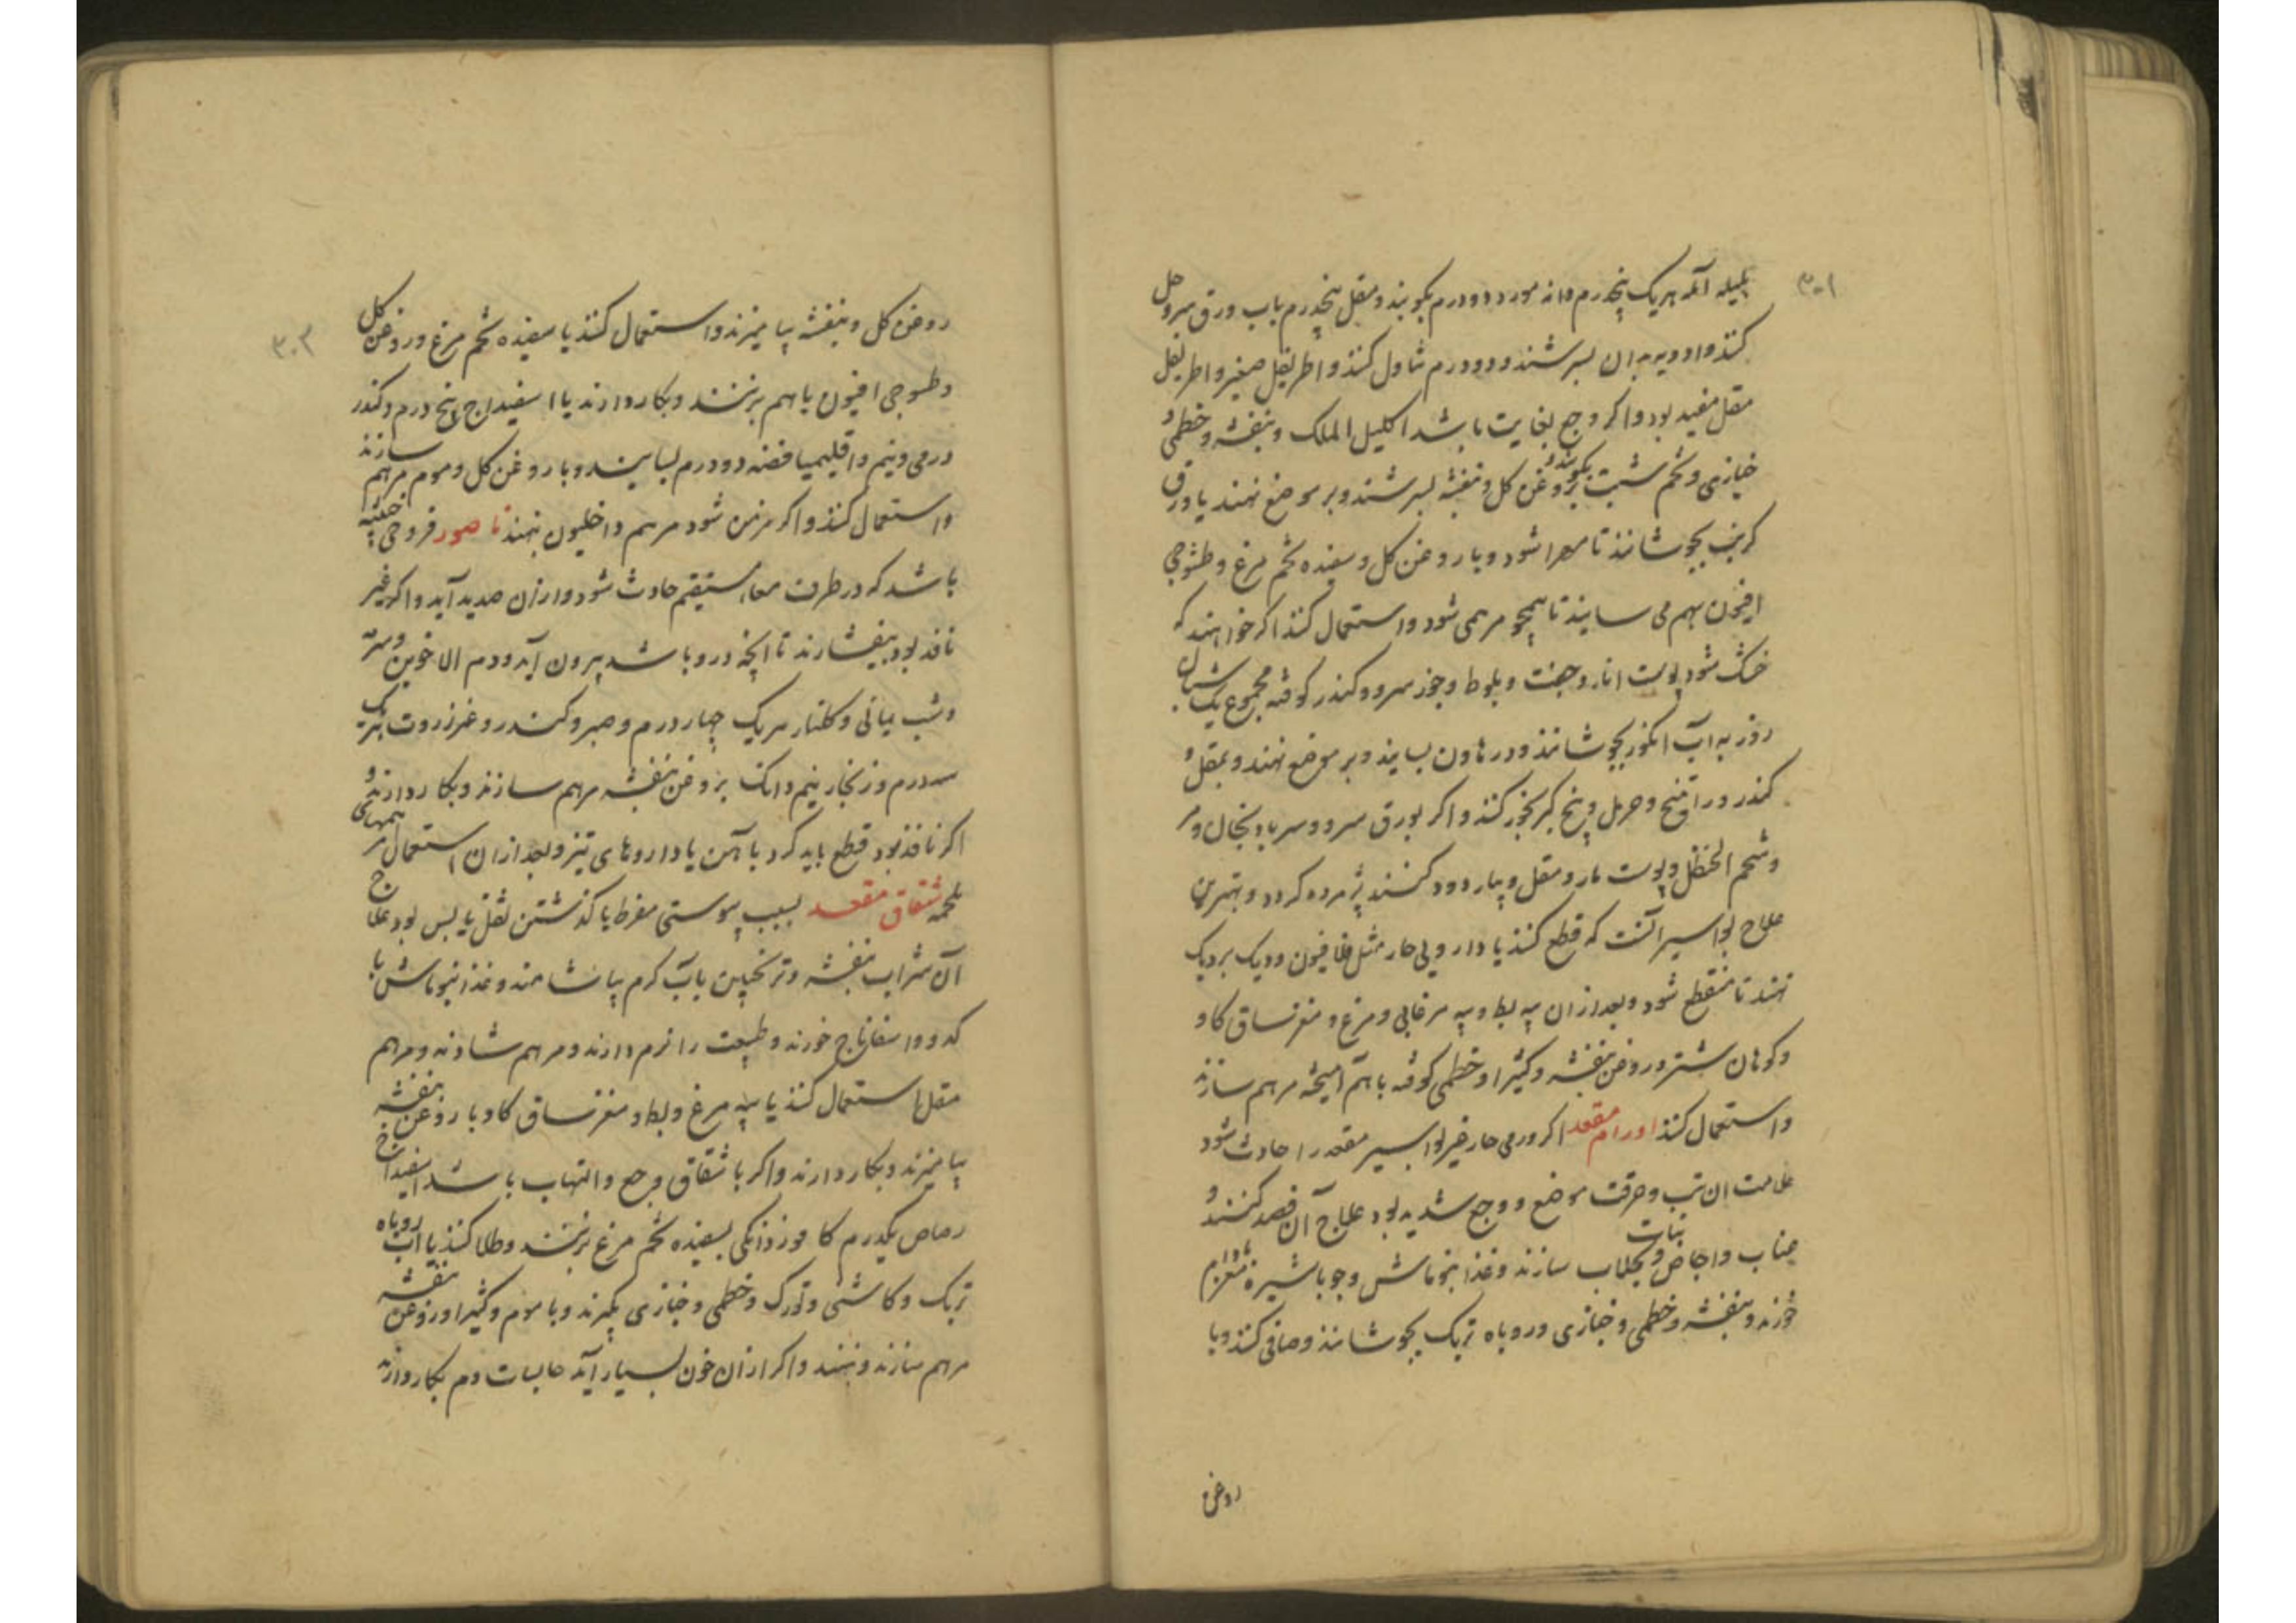 ۳۰۱
بلیله آمله هریک پنجدرم دانه مورد دودرم بکوبند و مقل پنجدرم باب ورق سرو حل
کنند و ادویه به ان بسرشند و دودرم تناول کنند و اطریفل صغیر و اطریفل
مقل مفید بود و اکر وجع بغایت باشد اکلیل الملک و بنفشه و خطمی و
خبازی و تخم شبت بکوبند و بروغن کل و بنفشه بسرشند و بر موضع نهند یا ورق
کرنب بجوشانند تا مهرا شود و با روغن کل و سفیده تخم مرغ و طسوجی
افیون بهم می سایند تا همچو مرهمی شود و استعمال کنند اکر خواهند که
خشک شود پوست انار و جفت و بلوط و جوز سرو و کندر کوفته مجموع یک شبان
روز به آب انکور بجوشانند و در هاون بسایند و بر موضع نهند و بمقل و
کندر و راتینج و حرمل و بیخ کبر بخور کنند و اکر بورق سرو و سر بادنجان و مر
و شحم الحنظل و پوست مار و مقل و پیاز دود کنند پژمرده کردد و بهترین
علاج بواسیر آنست که قطع کنند یا داروی حار مثل فلافیون و دیک بر دیک
نهند تا منقطع شود و بعد از ان پیه بط و پیه مرغابی و مرغ و مغز ساق کاو
و کوهان شتر و روغن بنفشه و کثیرا و خطمی کوفته باهم آمیخته مرهم سازند
و استعمال کنند اورام مقعد اکر ورمی حار غیر بواسیر مقعد را حادث شود
علامت ان تب و حرقت موضع و وجع شدید بود علاج آن فصد کنند و
عناب و اجاص و بجلاب نبات سازند و غذا بنوماش و جو با شیره مغز بادام
خورند و بنفشه و خطمی و خبازی و روباه تربک بجوشانند و صافی کنند و با
روغن
۳۰۲
روغن کل و بنفشه بیامیزند و استعمال کنند یا سفیده تخم مرغ و روغن کل
و طسوجی افیون باهم بزنند و بکار دارند یا اسفیداج پنج درم و کندر
درمی و نیم و اقلیمیا فضه دودرم بسایند و با روغن کل و موم مرهم سازند
و استعمال کنند و اکر مزمن شود مرهم داخلیون نهند ناصور قروحی خبیثه
باشد که در طرف معاء مستقیم حادث شود و از ان صدید آید و اکر غیر
نافذ بود بیفشارند تا آنچه درو باشد بیرون آید و دم الاخوین و سرمه
و شب یمانی و کلنار هریک چهار درم و صبر و کندر و عنزروت هریک
سه درم و زنجار نیم دانک بروغن بنفشه مرهم سازند و بکار دارند و
اکر نافذ بود قطع باید کرد با آهن یا داروهای تیز و بعد از ان استعمال مرهمهای
ملحمه شقاق مقعد بسبب یبوستی مفرط یا کذشتن ثفل یابس بود علاج
آن شراب بنفشه و ترنجبین بآب کرم بیاشامند و غذا بنوماش با
کدو و اسفاناج خورند و طبیعت را نرم دارند و مرهم شادنه و مرهم
مقل استعمال کنند یا پیه مرغ و بط و مغز ساق کاو با روغن بنفشه
بیامیزند و بکار دارند و اکر با شقاق وجع و التهاب باشد اسفیداج
رصاص یکدرم کافور دانکی بسفیده تخم مرغ بزنند و طلا کنند یا آب روباه
تربک و کاشنی و تورک و خطمی و خبازی بکیرند و با موم و کثیرا و روغن بنفشه
مرهم سازند و نهند و اکر از ان خون بسیار آید حابسات دم بکار دارند